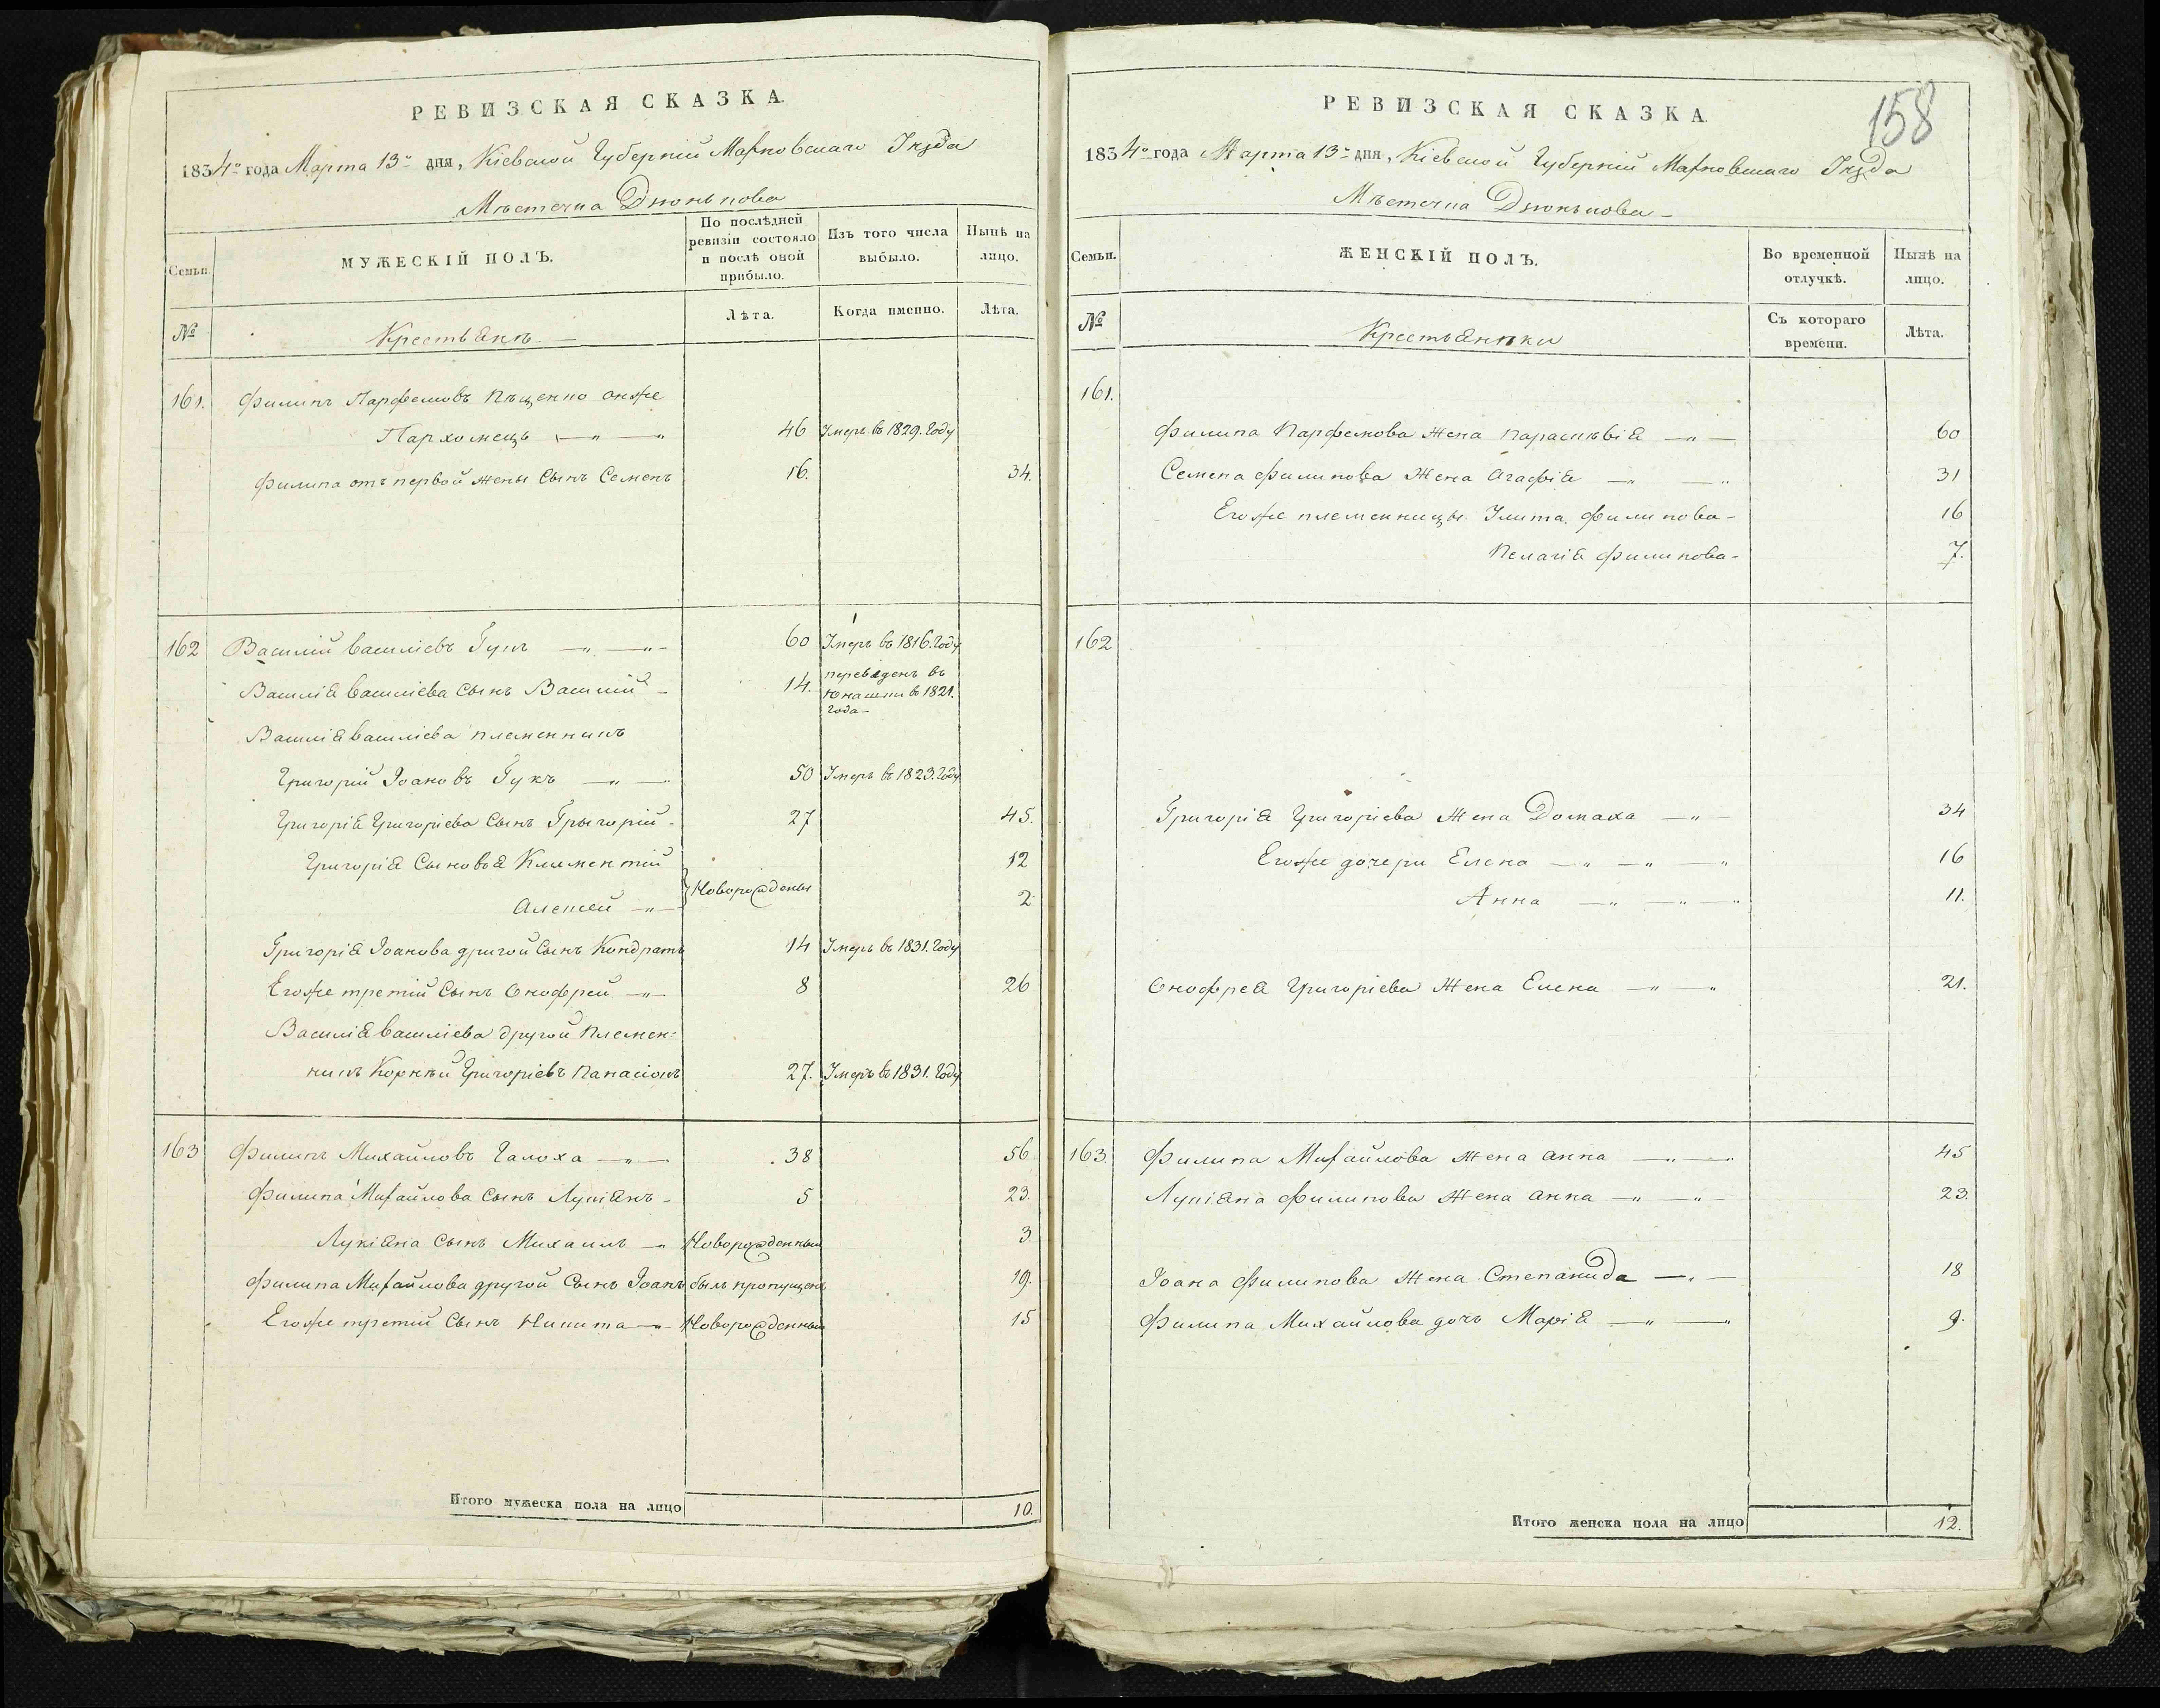 РЕВИЗСКАЯ СКАЗКА.
1834го года Марта 13го дня, Кіевской Губерніи Махновскаго Уѣзда
Мѣстечка Дзюнькова
Семьи.
МУЖЕСКІЙ ПОЛЪ.
По послѣдней ревизіи состояло и послѣ оной прибыло.
Изъ того числа выбыло.
Нынѣ на лицо.
№
Крестьянѣ
Лѣта.
Когда именно.
Лѣта.
161. Филипъ Парфемовъ Пѣщенко онже
Пархомецъ — „ — „ 46 Умеръ въ 1829. Году
Филипа отъ первой жены Сынъ Семенъ 16. 34.
162 Василій Василіевъ Гукъ — „ — „ 60 Умеръ въ 1816. Году
Василія Василіева Сынъ Василий 14. переведенъ въ
Юнашки в 1821.
Года
Василія Василіева племенникъ
Григорій Іоановъ Гукъ — „ — 50 Умеръ въ 1823. Году
Григорія Григоріева Сынъ Грыгорій 27 45.
Григорія Сыновья Климентій 12
Новорожденны
Алексей — „ 2
Григорія Іоанова другой Сынъ Кондратъ 14 Умеръ въ 1831. Году
Егоже третій Сынъ Онофрей — „ 8 26
Василія Василіева другой Племен-
никъ Корнѣй Григоріевъ Панасюкъ 27. Умеръ въ 1831. Году
163 Филипъ Михайловъ Галоха — „ 38 56
Филипа Михайлова Сынъ Лукіянъ 5 23.
Лукіяна Сынъ Михаилъ — „ Новорожденный 3
Филипа Михайлова другой Сынъ Іоанъ былъ пропущенъ 19.
Егоже третий Сынъ Никита — „ Новорожденный 15
Итого мужеска пола на лицо 10.
158
РЕВИЗСКАЯ СКАЗКА.
1834го года Марта 13го дня, Кіевской Губерніи Махновскаго Уѣзда
Мѣстечка Дзюнькова
Семьи.
ЖЕНСКІЙ ПОЛЪ.
Во временной отлучкѣ.
Нынѣ на лицо.
№
Крестьянѣки
Съ котораго времени.
Лѣта.
161.
Филипа Парфемова жена Параскѣвія — „ — 60
Семена Филипова Жена Агафія — „ — „ 31
Егоже племенницы Улита Филипова 16
Пелагія Филипова 7.
162
Григорія Григоріева Жена Домаха — „ — 34
Егоже дочери Елена — „ — „ — „ 16
Анна — „ — „ — „ 11.
Онофрея Григоріева Жена Елена — „ — „ 21.
163. Филипа Михайлова Жена Анна — „ — „ 45
Лукіяна Филипова Жена Анна — „ — „ 23.
Іоана Филипова Жена Степанида — „ — 18
Филипа Михайлова дочь Марія — „ — „ 9.
Итого женска пола на лицо 12.